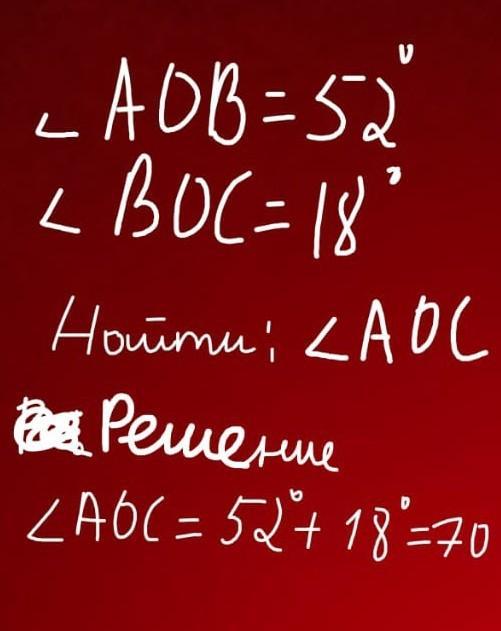 ∠AOB=52°
∠BOC=18°
Найти: ∠AOC
Решение
∠AOC=52°+18°=70